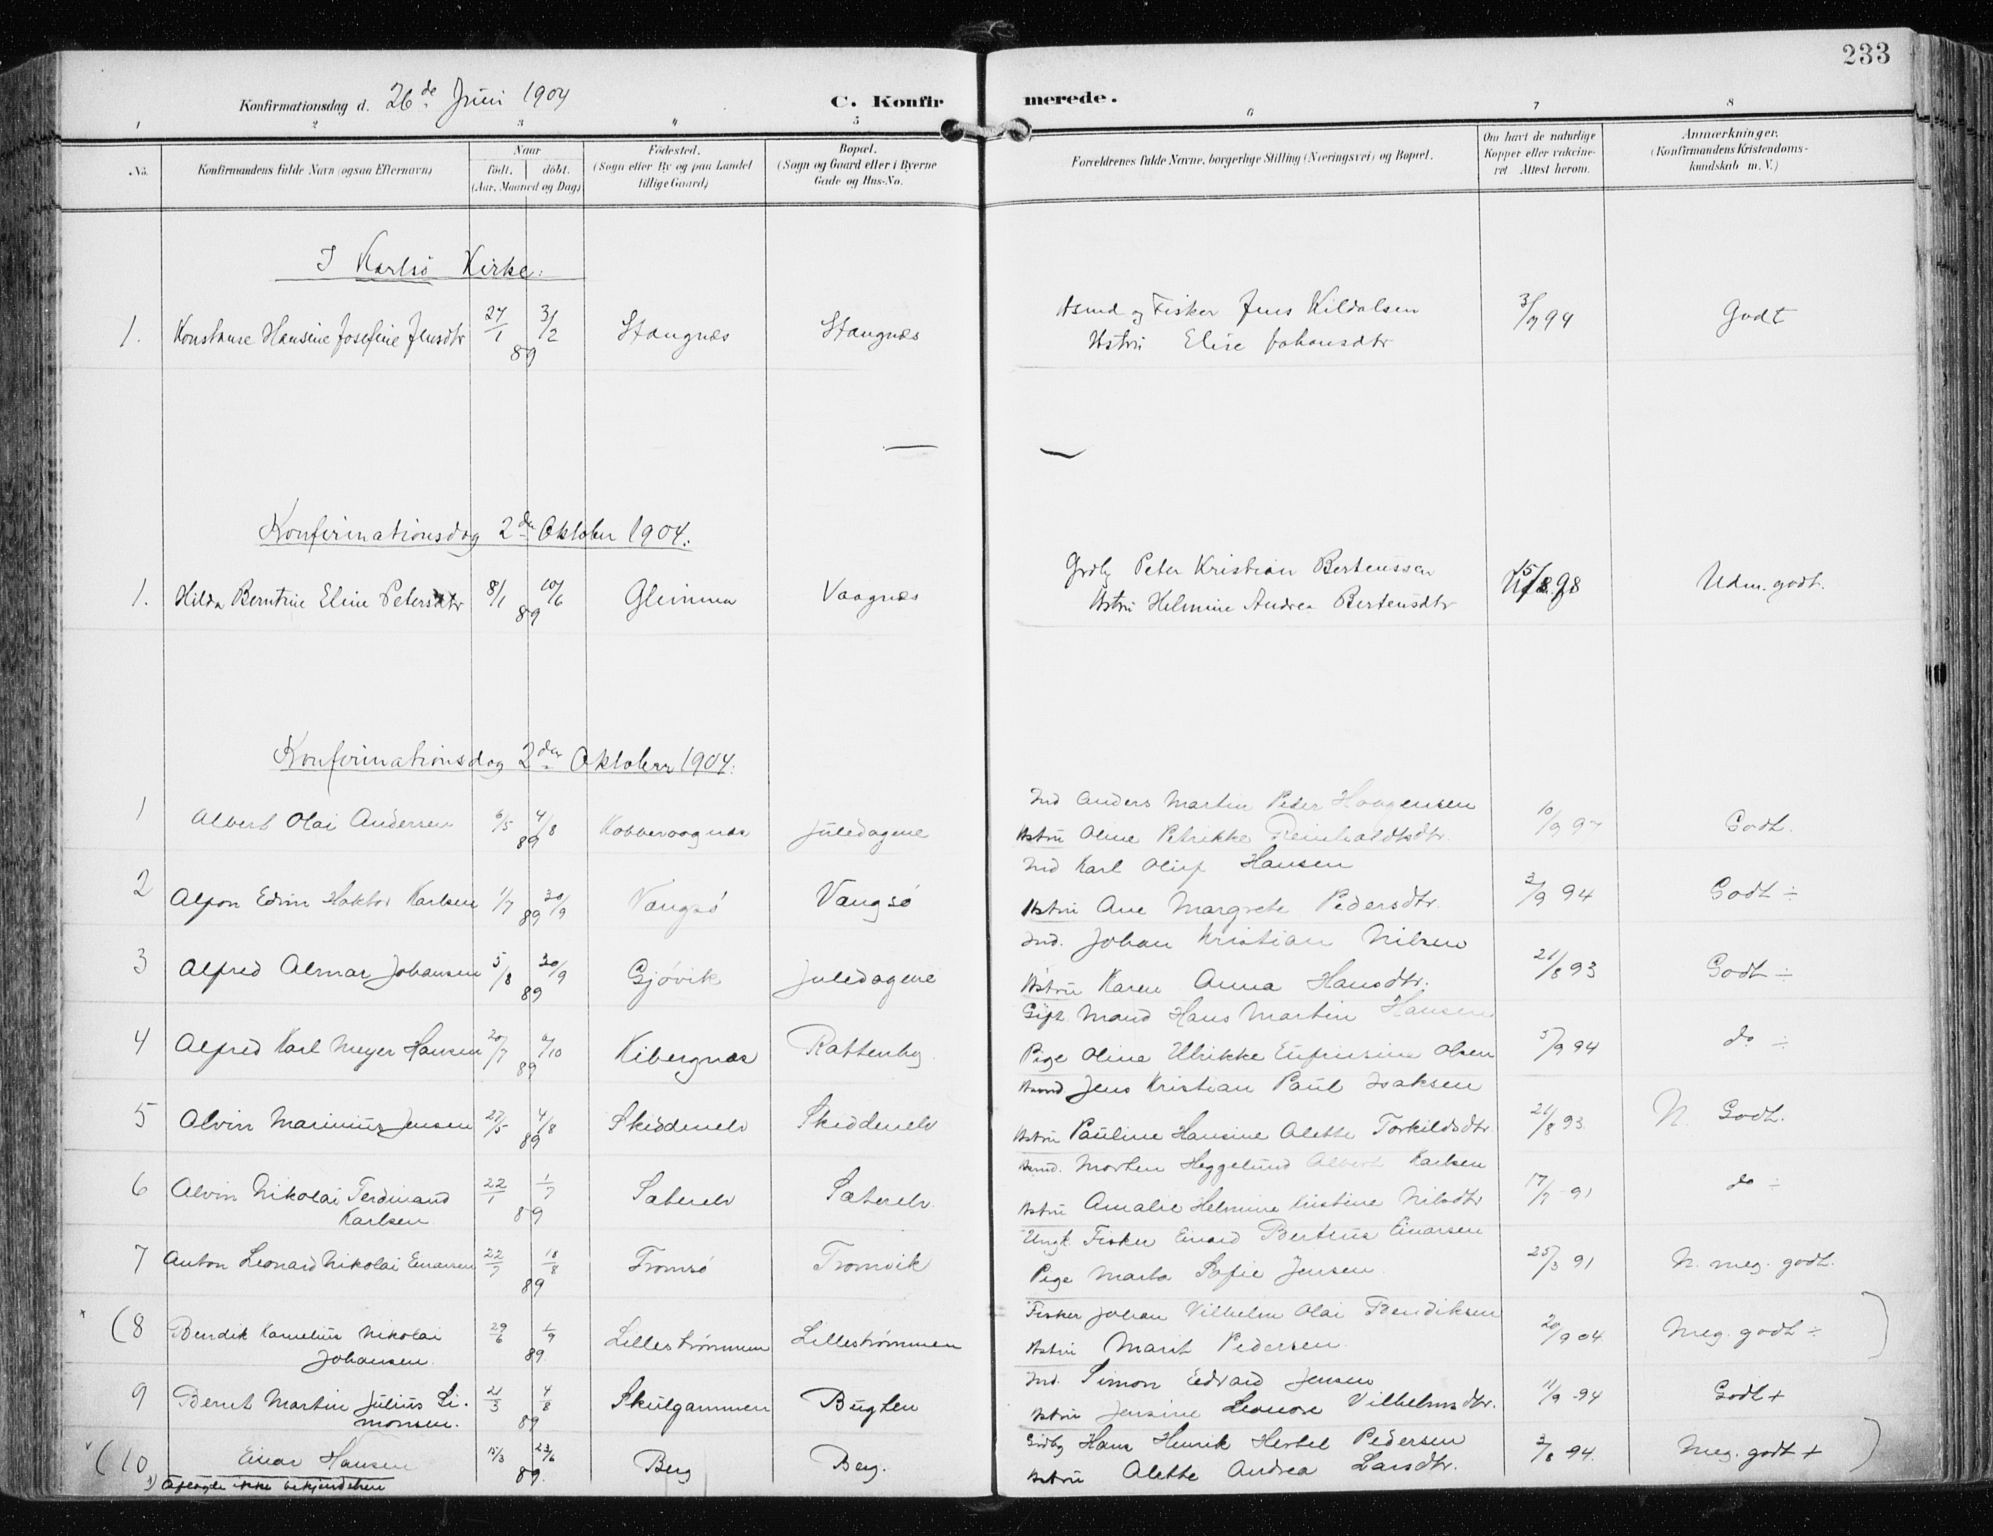 233
Konfirmationsdag d. 26de Juni 1904
C. Konfir merede.
1 2 3 4 5 6 7 8
No.
Konfirmandens fulde Navn (ogsaa Efternavn)
Naar
født. døbt.
(Aar, Maaned og Dag)
Fødested.
(Sogn eller By og paa Landet
tillige Gaard)
Bopæl.
(Sogn og Gaard eller i Byerne
Gade og Hus-No.
Forældrenes fulde Navne, borgerlige Stilling (Næringsvei) og Bopæl.
Om havt de naturlige
Kopper eller vakcine-
ret Attest herom.
Anmærkninger.
(Konfirmandens Kristendoms-
kundskab m. V.)
I Karlsö Kirke.
1. Konstanse Hansine Josefine Jensdtr 27/1 3/2 89 Stangnæs Stangnæs
og Fisker Jens Kildalsen
Hstru Elise Johansdtr
3/9 94 Godt
Konfirmationsdag 2den Oktober 1904.
1. Hilda Berntine Eline Petersdtr 8/1 10/6 89 Glimma Vaagnes
Grdbr Peter Kristian Bertenssen
Hstru Helmine Andrea Bertensdtr
Udm. godt.
Konfirmationsdag 2den Oktober 1904.
1 Albert Olai Andersen 6/5 4/8 89 Kobbevagnæs Juledagene
Ind Anders Martin Peder Haagensen
Hstru Oline Petrikke Reinholdtsdtr.
10/9 97 Godt.
2 Alfon Edvin Haktor Karlsen 1/7 30/9 89 Vangsö Vangsö
Ind Karl Oluf Hansen
Hstru Ane Margrete Pedersdtr.
3/9 94 Godt ÷
3 Alfred Almar Johansen 5/8 30/9 89 Gjövik Juledagene
Ind. Johan Kristian Nilsen
Hstru Karen Anna Hansdtr.
21/8 93 Godt ÷
4 Alfred Karl Meyer Hansen 20/7 /10 89 Kibergnæs Rattenby
Gift Mand Hans Martin Hansen
Pige Oline Ulrikke Eufrusine Olsen
5/9 94 do ÷
5 Alvin Marinius Jensen 27/5 4/8 89 Skiddenelv Skiddenelv
Jens Kristian Paul Isaksen
Hstru Pauline Hansine Alette Torkildsdtr
21/8 93. N. Godt.
6 Alvin Nikolai Ferdinand
Karlsen 22/1 1/7 89 Säterelv Säterelv.
Morten Heggelund Albert Karlsen
Hstru Amalie Helmine Kristine Nilsdtr
17/7 91 do ÷
7 Anton Leonard Nikolai Einarsen 22/7 18/8 89 Tromsö Tromvik
Ungk. Fisker Einard Bertius Einarsen
Pige Marta Sofie Jensen.
25/3 91 N. meg. godt.
(8 Bendik Kornelius Nikolai
Johansen. 29/6 1/9 89. Lilleströmmen Lilleströmmen
Fisker Johan Vilhelm Olai Bendiksen
Hstru Marit Pedersen.
20/9 04 Meg. godt ÷ )
9 Bernt Martin Julius Si-
monsen. 21/3 4/8 89 Skulgammen Bugten
Ind. Simon Edvard Jensen
Hstru Jensine Leonore Vilhelmsdtr.
11/9 94 Godt +
(10 Einar Hansen 15/3 23/6 89. Berg Berg.
Grdbr Hans Henrik Hertel Pedersen
Hstru Alette Andrea Larsdtr.
3/8 94. Meg. godt + )
1) Aflagde ikke bekjendelsen